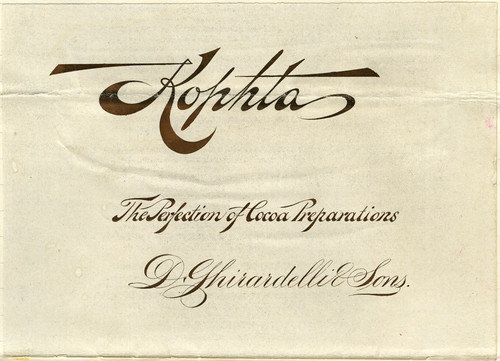 Kophta
The Perfection of Cocoa Preparations
D. Ghirardelli & Sons.